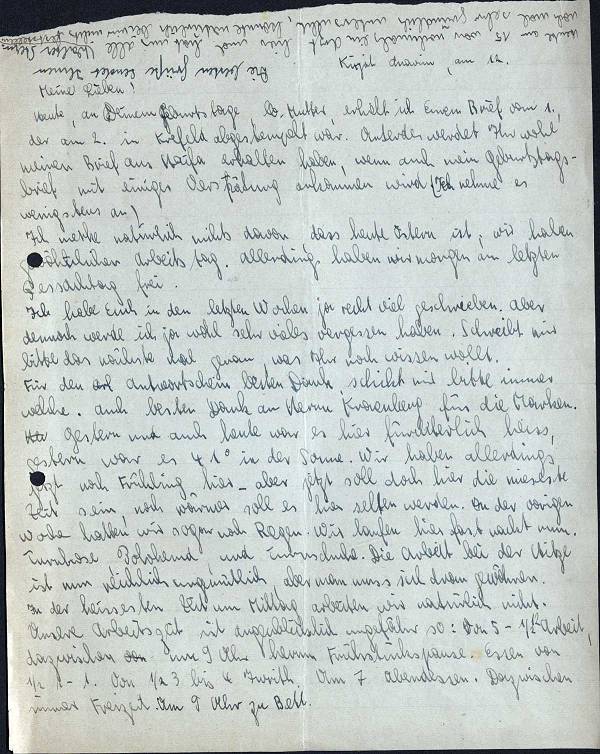 Kirjat Anavim, am 12.
Meine Lieben!
Heute, an Deinem Geburtstage lb. Mutter, erhielt ich Einen Brief vom 1.,
der am 2. in Krefeld abgestempelt war. Anderdes werdet Ihr wohl
meinen Brief aus Haifa erhalten haben, wenn auch mein Geburtstags-
brief mit einiges Verspätung ankommen wird (Ich nehme es
wenigstens an)
Ich merke natürlich nichts davon dass heute Ostern ist, wir haben
gewöhnlichen Arbeitstag. Allerdings haben wir morgen am letzten
Pessachtag frei.
Ich habe Euch in den letzten Wochen ja recht viel geschrieben. Aber
dennoch werde ich ja wohl sehr vieles vergessen haben. Schreibt mir
bitte das nächste Mal genau was Ihr noch wissen wollt.
Für den Antwortschein besten Dank, schickt mir bitte immer
welche. Auch besten Dank an Herrn für die Marken.
Gestern und auch heute war es hier fürchterlich heiss,
gestern war es 41° in der Sonne. Wir haben allerdings
jetzt noch Frühling hier – aber jetzt soll doch hier die
Zeit sein, noch wärmer soll es hier selten werden. In der vorigen
Woche hatten wir sogar noch Regen. Wir laufen hier fast nackt rum.
Turnhose Polohemd und Turnschuhe. Die Arbeit bei der Hitze
ist nun reichlich ungemütlich, aber man muss sich dran gewöhnen.
In der heissesten Zeit um Mittag arbeiten wir natürlich nicht.
Unsere Arbeitszeit ist augenblicklich ungefähr so: Von 5 - Arbeit,
dazwischen um 9 Uhr herum Frühstückspause. Essen von
1/2 1 - 1. Von 1/2 3 bis 4 Iwrith. Um 7 Abendessen. Dazwischen
immer Freizeit. Um 9 Uhr zu Bett.
Die besten Grüße sendet Ihnen